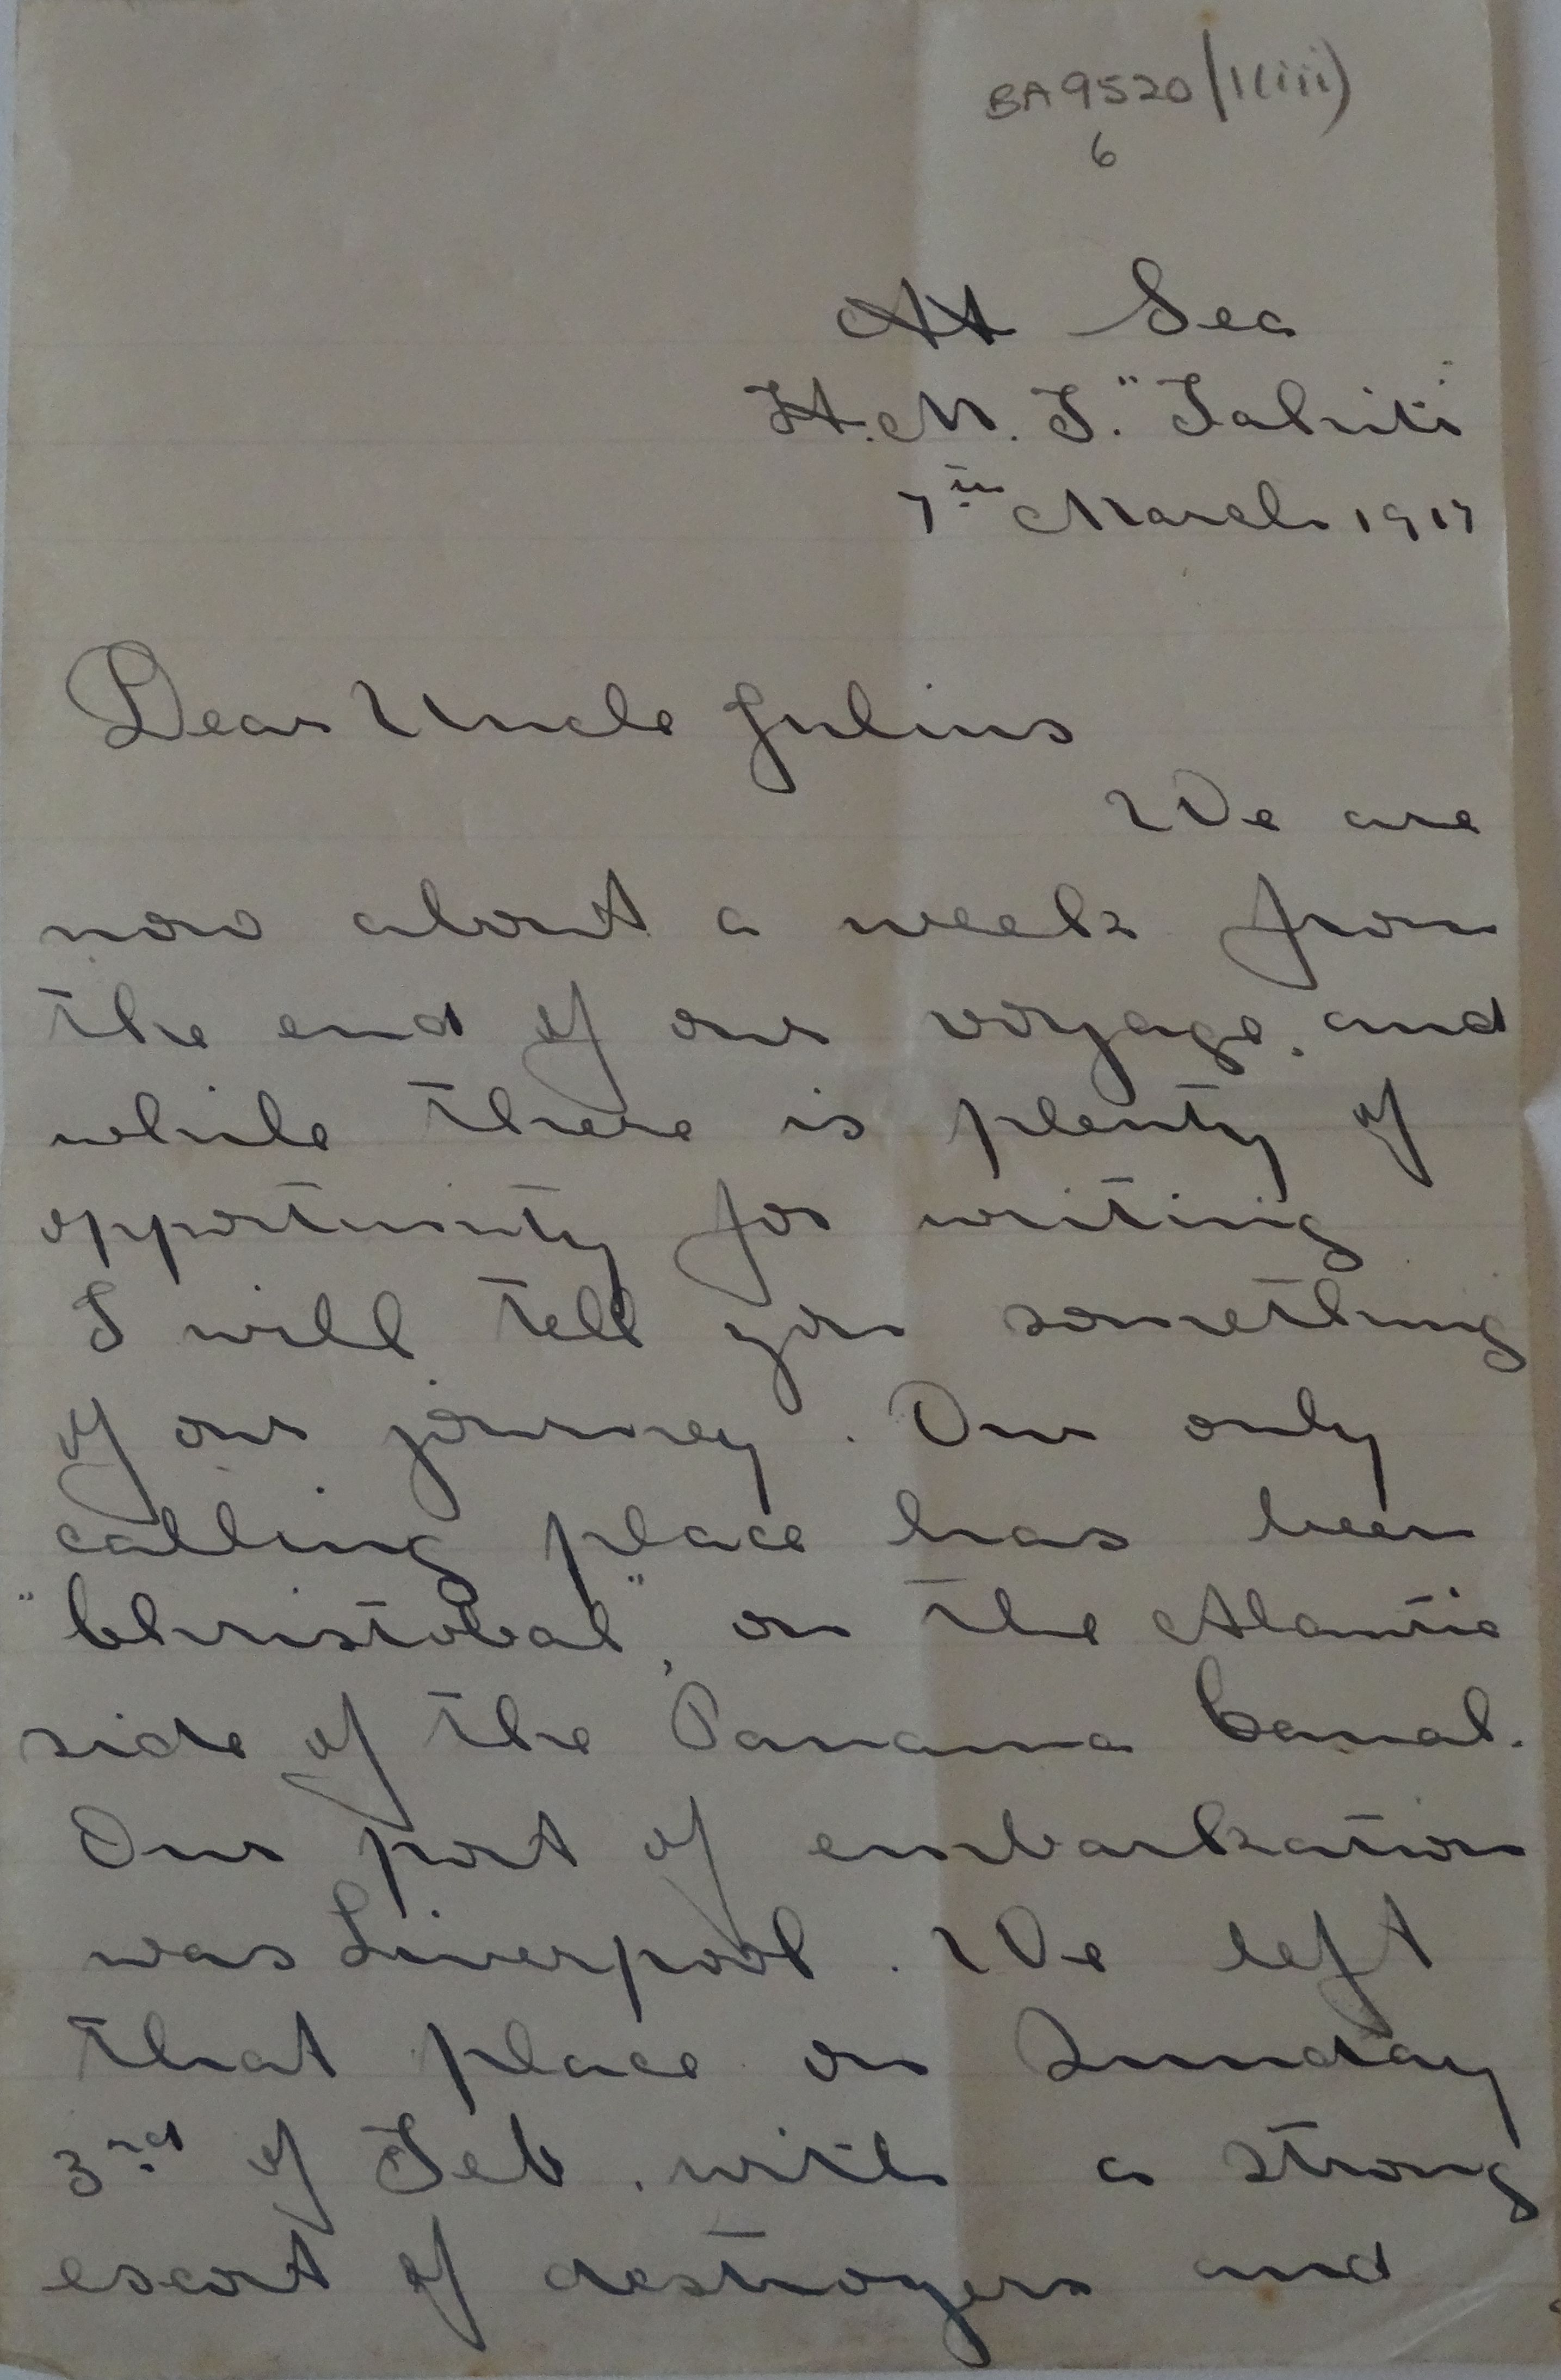 BA9520/1(iii)
6
At Sea
H.M.T. "Tahiti"
7th March 1917
Dear Uncle Julius
We are
now about a week from
the end of our voyage. and
while there is plenty of
opportunity for writing
I will tell you something
of our journey. Our only
calling place has been
"Christobal", on the Atlantic
side of the Panama Canal.
Our port of embarkation
was Liverpool. We left
that place on Sunday
3rd of Feb. with a strong
escort of destroyers and